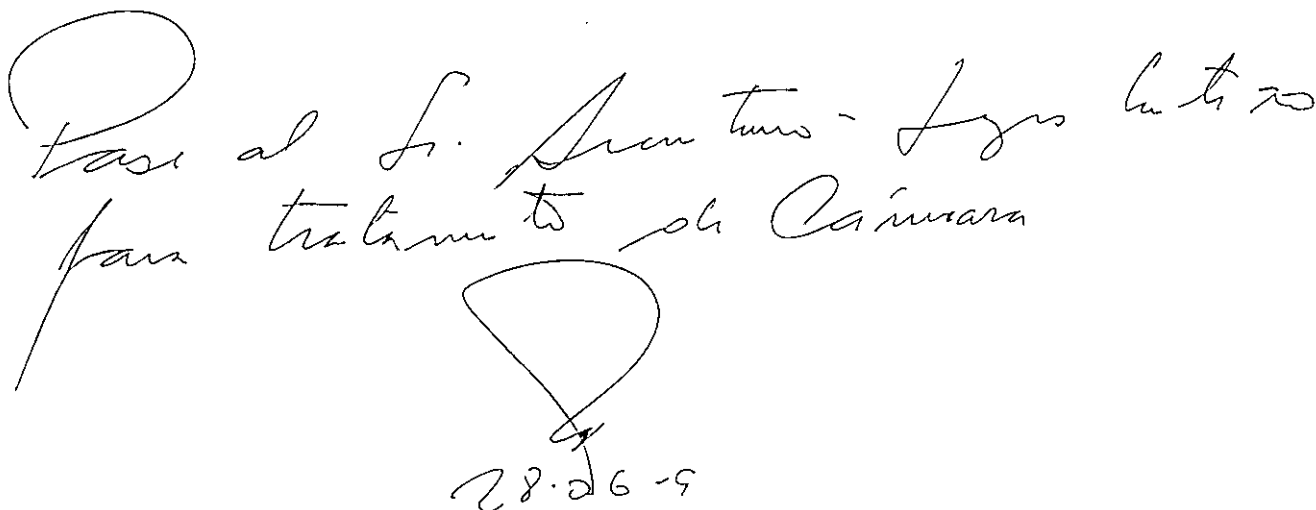 Pase al Sr. Secretario Legislativo
para tratamiento de Cámara
28-06-9